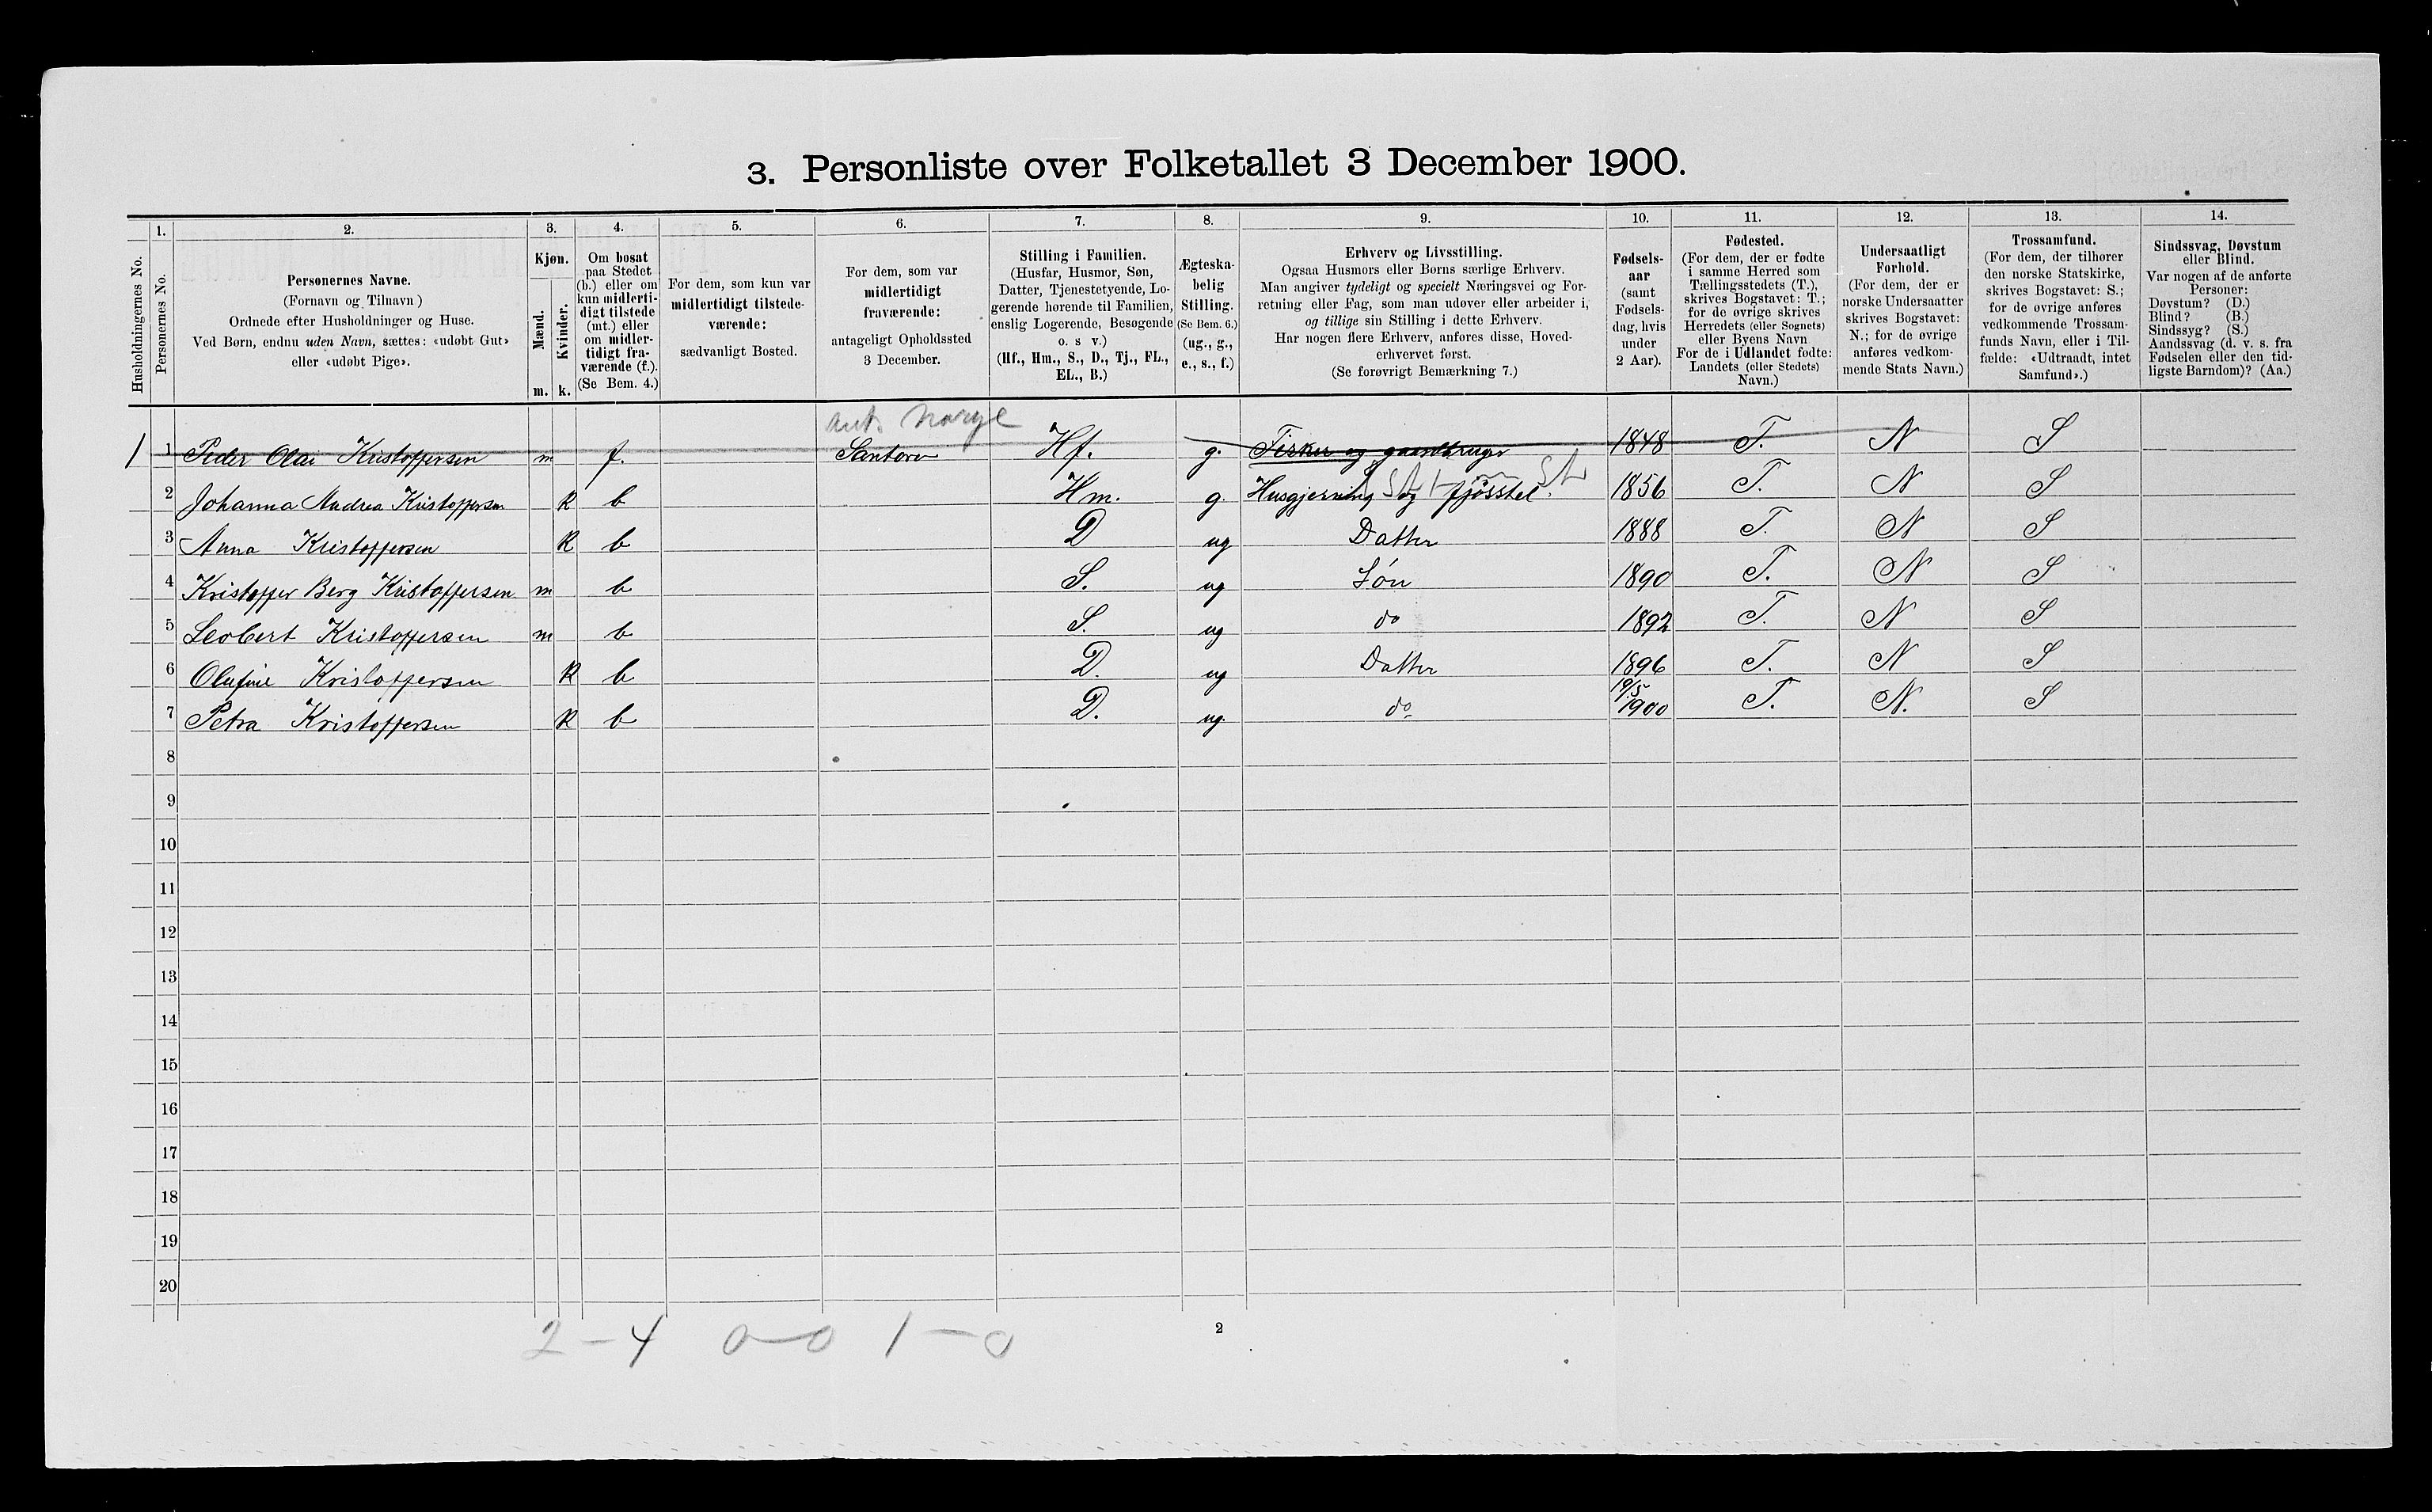 3. Personliste over Folketallet 3 December 1900.
1. 2. 3. 4. 5. 6. 7. 8. 9. 10. 11. 12. 13. 14.
Husholdningernes No.
Personernes No.
Personernes Navne.
(Fornavn og Tilnavn )
Ordnede efter Husholdninger og Huse.
Ved Børn, endnu uden Navn, sættes: «udøbt Gut»
eller «udøbt Pige».
Kjøn.
Mænd.
Kvinder.
m. k.
Om bosat
paa Stedet
(b.) eller om
kun midlerti-
digt tilstede
(mt.) eller
om midler-
tidigt fra-
værende (f.).
(Se Bem. 4.)
For dem, som kun var
midlertidigt tilstede-
værende:
sædvanligt Bosted.
For dem, som var
midlertidigt
fraværende:
antageligt Opholdssted
3 December.
Stilling i Familien.
(Husfar, Husmor, Søn,
Datter, Tjenestetyende, Lo-
gerende hørende til Familien,
enslig Logerende, Besøgende
o. s v.)
(Hf., Hm., S., D., Tj., FL.,
EL., B.)
Ægteska-
belig
Stilling.
(Se Bem. 6.)
(ug., g.,
e., s., f.)
Erhverv og Livsstilling.
Ogsaa Husmors eller Børns særlige Erhverv.
Man angiver tydeligt og specielt Næringsvei og For-
retning eller Fag, som man udøver eller arbeider i,
og tillige sin Stilling i dette Erhverv.
Har nogen flere Erhverv, anføres disse, Hoved-
erhvervet først.
(Se forøvrigt Bemærkning 7.)
Fødsels-
aar
(samt
Fødsels-
dag, hvis
under
2 Aar).
Fødested.
(For dem, der er fødte
i samme Herred som
Tællingsstedets (T.),
skrives Bogstavet: T.;
for de øvrige skrives
Herredets (eller Sognets)
eller Byens Navn
For de i Udlandet fødte:
Landets (eller Stedets)
Navn.)
Undersaatligt
Forhold.
(For dem, der er
norske Undersaatter
skrives Bogstavet:
N.; for de øvrige
anføres vedkom-
mende Stats Navn.)
Trossamfund.
(For dem, der tilhører
den norske Statskirke,
skrives Bogstavet: S.;
for de øvrige anføres
vedkommende Trossam-
funds Navn, eller i Til-
fælde: «Udtraadt, intet
Samfund».)
Sindssvag, Døvstum
eller Blind.
Var nogen af de anførte
Personer:
Døvstum? (D.)
Blind? (B.)
Sindssyg? (S.)
Aandssvag (d. v. s. fra
Fødselen eller den tid-
ligste Barndom)? (Aa.)
ant. Norge
1 1 Peder Olai Kristoffersen m f. Hf. g. Fisker og gaardbruger 1848 T. N S
2 Johanna Andrea Kristoffersen k b Hm. g. Husgjerning og fjøsstel. 1856 T. N S
3 Anna Kristoffersen k b D ug Datter 1888 T. N S
4 Kristoffer Berg Kristoffersen m b S. ug Søn 1890 T. N S
5 Leobert Kristoffersen m b S. ug do 1892 T. N S
6 Olufine Kristoffersen k b D. ug Datter 1896 T. N S
7 Petra Kristoffersen k b D. ug. do 19/5 1900 T. N. S
8
9
10
11
12
13
14
15
16
17
18
19
20
2 - 4 0-0 1-0
2